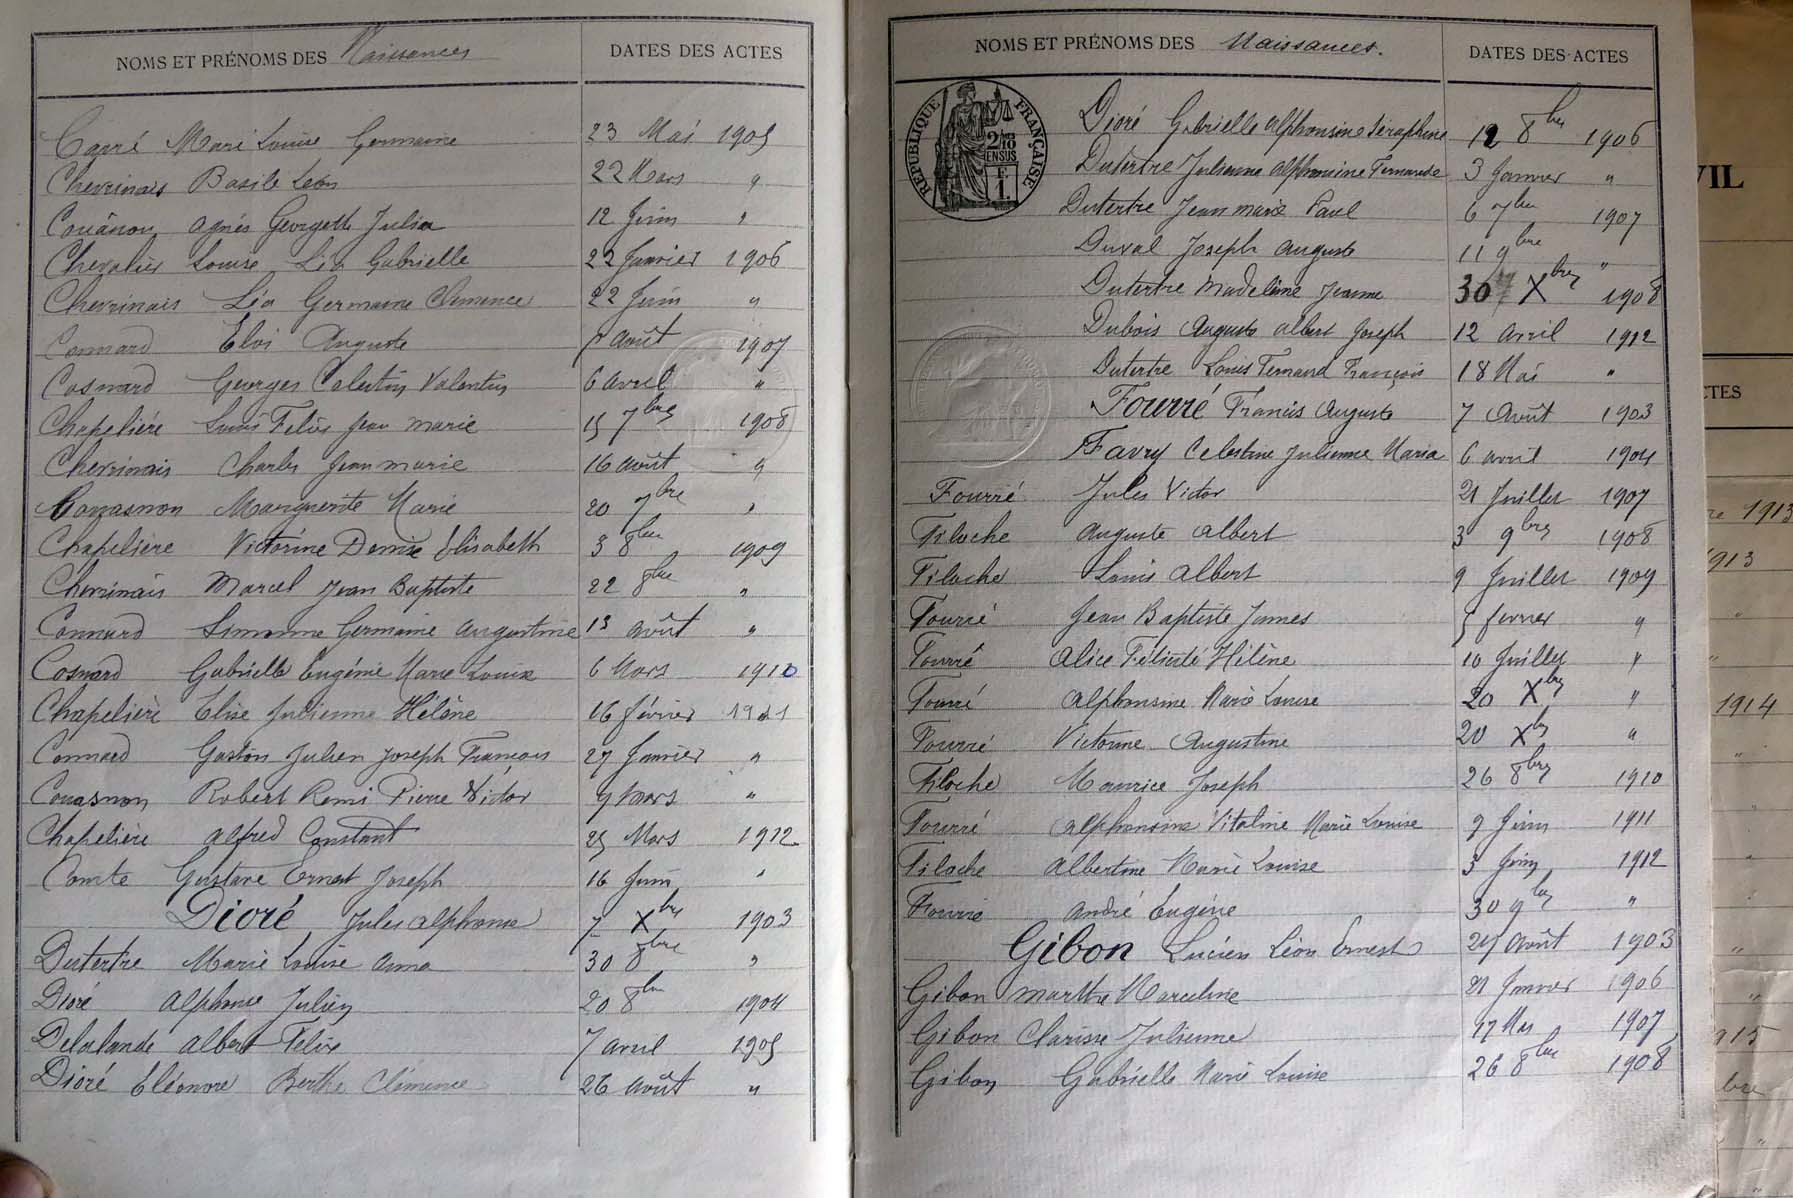 NOMS ET PRÉNOMS DES Naissances DATES DES ACTES
Capré Marie Louise Germaine 23 Mai 1905
Chevrinais Basile Léon 22 Mars "
Couânon Agnès Georgette Julia 12 Juin "
Chevalier Louise Léa Gabrielle 22 Janvier 1906
Chevrinais Léa Germaine Clemence 22 Juin "
Connard Eloi Auguste août 1907
Cosnard Georges Celestin Valentin 6 avril "
Chapelière Louis Felix Jean Marie 15 7bre 1908
Chevrinais Charles Jean Marie 16 août "
Couasnon Marguerite Marie 20 7bre "
Chapelière Victorine Denise Elisabeth 3 8bre 1909
Chevrinais Marcel Jean Baptiste 22 8bre "
Connard Simonne Germaine Augustine 13 août "
Cosnard Gabrielle Eugénie Marie Louise 6 Mars 1910
Chapelière Elise Julienne Hélène 16 février 1911
Connard Gaston Julien Joseph François 27 Janvier "
Couasnon Robert Remi Pierre Victor 9 Mars "
Chapelière Alfred Constant 25 Mars 1912
Comte Gustave Ernest Joseph 16 Juin "
Dioré Jules Alphonse 7 Xbre 1903
Dutertre Marie Louise Anna 30 8bre "
Dioré Alphonse Julien 20 8bre 1904
Delalande Albert Felix 7 avril 1905
Dioré Eléonore Berthe Clémence 26 août "
NOMS ET PRÉNOMS DES Naissances. DATES DES ACTES
RÉPUBLIQUE FRANÇAISE
2/10 EN SUS
1 F.
Dioré Gabrielle Alphonsine Séraphine 12 8bre 1906
Dutertre Julienne Alphonsine Fernande 3 Janvier "
Dutertre Jean Marie Paul 6 7bre 1907
Duval Joseph Auguste 11 9bre "
Dutertre Madeleine Jeanne 30 Xbre 1908
Dubois Auguste Albert Joseph 12 avril 1912
Dutertre Louis Fernand François 18 Mai "
Fourré Francis Auguste 7 Août 1903
Favry Celestine Julienne Maria 6 avril 1904
Fourré Jules Victor 21 Juillet 1907
Filoche Auguste Albert 3 9bre 1908
Filoche Louis Albert 9 Juillet 1909
Fourré Jean Baptiste James 5 fevrier "
Fourré Alice Félicité Hélène 10 Juillet "
Fourré Alphonsine Marie Louise 20 Xbre "
Fourré Victorine Augustine 20 Xbre "
Filoche Maurice Joseph 26 8bre 1910
Fourré Alphonsine Vitaline Marie Louise 9 Juin 1911
Filoche Albertine Marie Louise 3 Juin 1912
Fourré André Eugène 30 9bre "
Gibon Lucien Léon Ernest 27 Août 1903
Gibon Marthe Marceline 21 Janvier 1906
Gibon Clarisse Julienne 17 Mai 1907
Gibon Gabrielle Marie Louise 26 8bre 1908
VIL
CTES
re 1913
1913
"
"
1914
"
"
"
"
"
"
915
bre
"